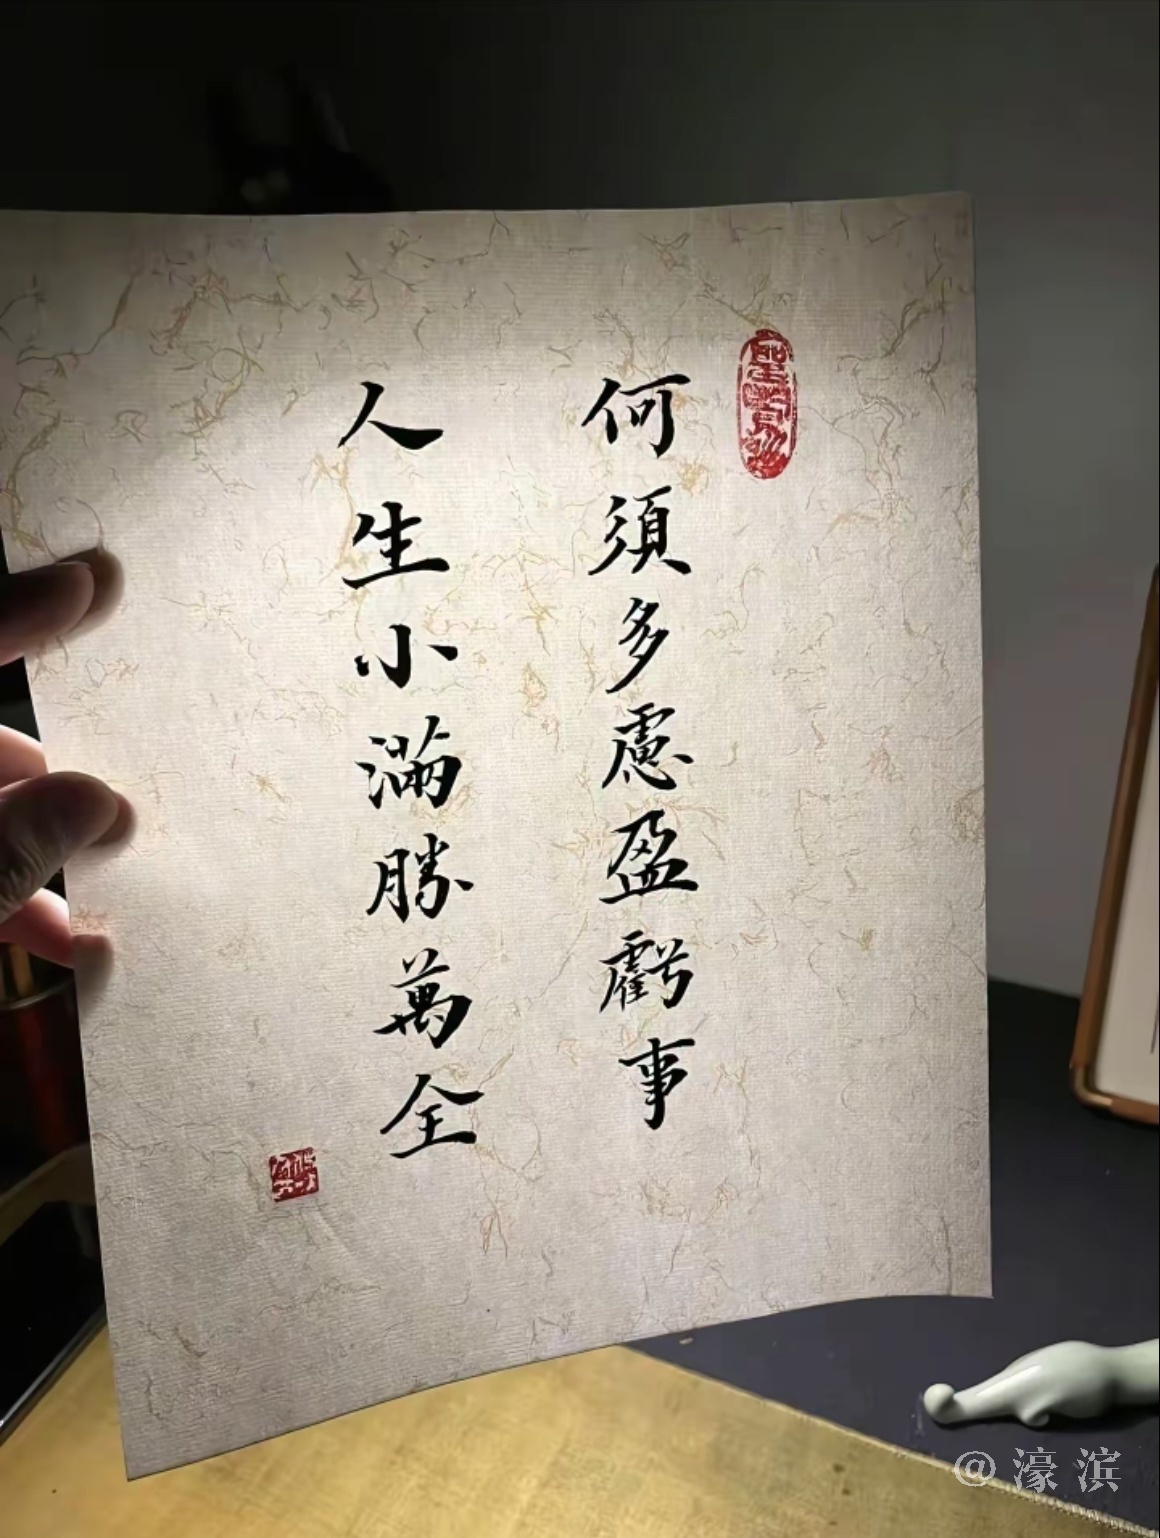 何須多慮盈虧事
人生小滿勝萬全
@濠滨